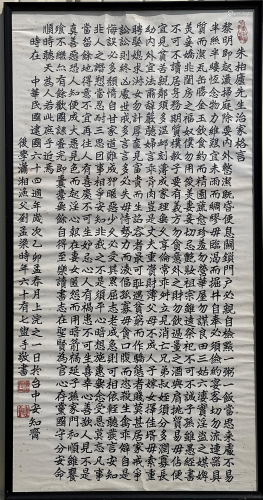 朱柏廬先生治家格言
黎明即起灑掃庭除要內外整潔既昏便息關鎖門戶必親自檢點一粥一飯當思來處不易
半絲半縷恆念物力維艱宜未雨而綢繆毋臨渴而掘井自奉必須儉約宴客切勿流連器具
質而潔瓦缶勝金玉飲食約而精園蔬愈珍饈勿營華屋勿謀良田三姑六婆實淫盜之媒婢
美妾嬌非閨房之福奴僕勿用俊美妻妾切忌艷妝祖宗雖遠祭祀不可不誠子孫雖愚經書
不可不讀居身務期質樸教子要有義方勿貪意外之財勿飲過量之酒與肩挑貿易毋佔便
宜見貧苦親鄰須多溫卹刻薄成家理無久享倫常乖舛立見消亡兄弟叔姪須分多潤寡長
幼內外宜法肅辭嚴聽婦言乖骨肉豈是丈夫重貲財薄父母不成人子嫁女擇佳壻毋索重
聘娶媳求淑女勿計厚奩見富貴而生諂容者最可恥遇貧窮而作驕態者賤莫甚居家戒爭
訟訟則終凶處世戒多言言多必失毋恃勢力而凌逼孤寡毋貪口腹而恣殺生禽乖僻自是
悔誤必多頹惰自甘家道難成狎暱惡少久必受其累屈志老成急則可相依輕聽發言安知
非人之譖愬當忍耐三思因事相爭安知非我之不是須平心暗想施惠無念受恩莫忘凡事
當留餘地得意不宜再往人有喜慶不可生妒忌心人有禍患不可生喜幸心善欲人見不是
真善惡恐人知便是大惡見色而起淫心報在妻女匿怨而用暗箭禍延子孫家門和順雖饔
飧不繼亦有餘歡國課早完即囊橐無餘自得至樂讀書志在聖賢為官心存黨國守分安命
順時聽天為人若此庶乎近焉
時在 中華民國建國六十四週年歲次乙卯孟春月上浣之一日於台中安知齋
後學瀟湘漁父劉孟梁時年六十有盥手敬書